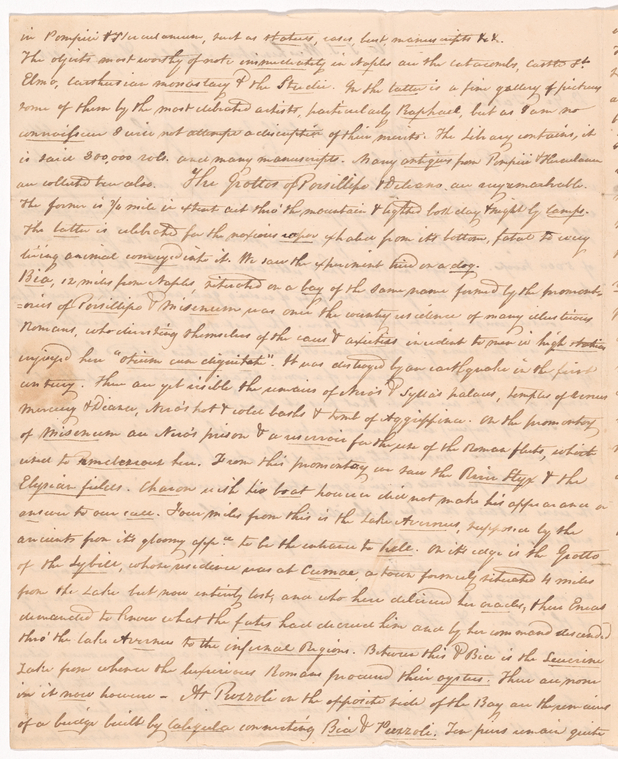 in Pompeii & Herculaneum, such as statues, vases, lost manuscripts &c.
The objects most worthy of note immediately in Naples are the catacombs, castle St.
Elmo, Carthusian monastary & the Studii. In the latter is a fine gallery of pictures
some of them by the most celebrated artists, particularly Raphael, but as I am no
connaisseur I will not attempt a description of their merits. The Library contains, it
is said 300,000 vols. and many manuscripts. Many antiques from Pompeii & Herculaneum
are collected here also. The Grottos of Posillipo & Delcano are very remarkable.
The former is ¾ mile in extent cut thro' the mountain & lighted both day & night by lamps.
The latter is celebrated for the noxious vapor exhaled from its bottom, fatal to every
living animal conveyed into it. We saw the experiment tried on a dog.
Bia, 12 miles from Naples, situated on a bay of the same name formed by the promont-
=ories of Posillipo & Misenum was once the country residence of many illustrious
Romans, who divesting themselves of the cares & anxieties incident to men in high stations
enjoyed here "otium cum dignitate". It was destroyed by an earthquake in the first
century. There are yet visible the remains of Nero's & Sylla's palaces, temples of Venus
Mercury & Diana, Nero's hot & cold baths & tomb of Aggrippina. On the promontory
of Misenum are Nero's prison & a reservoir for the use of the Roman fleets, which
used to rendezvous here. From this promontary we saw the River Styx & the
Elysian fields. Charon with his boat however did not make his appearance or
answer to our call. Four miles from this is the Lake Avernus, supposed by the
ancients from its gloomy appce to be the entrance to hell. On its edge is the Grotto
of the Sybill, whose residence was at Cumae, a town formerly situated 4 miles
from the Lake but now entirely lost, and who here delivered her oracles, thus Eneas
demanded to know what the fates had decreed him and by her command descended
thro' the lake Avernus to the infernal Regions. Between this & Bia is the Leucrine
Lake from whence the luxurious Romans procured their oysters. There are none
in it now however – At Puzzoli on the opposite side of the Bay are the remains
of a bridge built by Caligula connecting Bia & Puzzoli. Ten piers remain quite